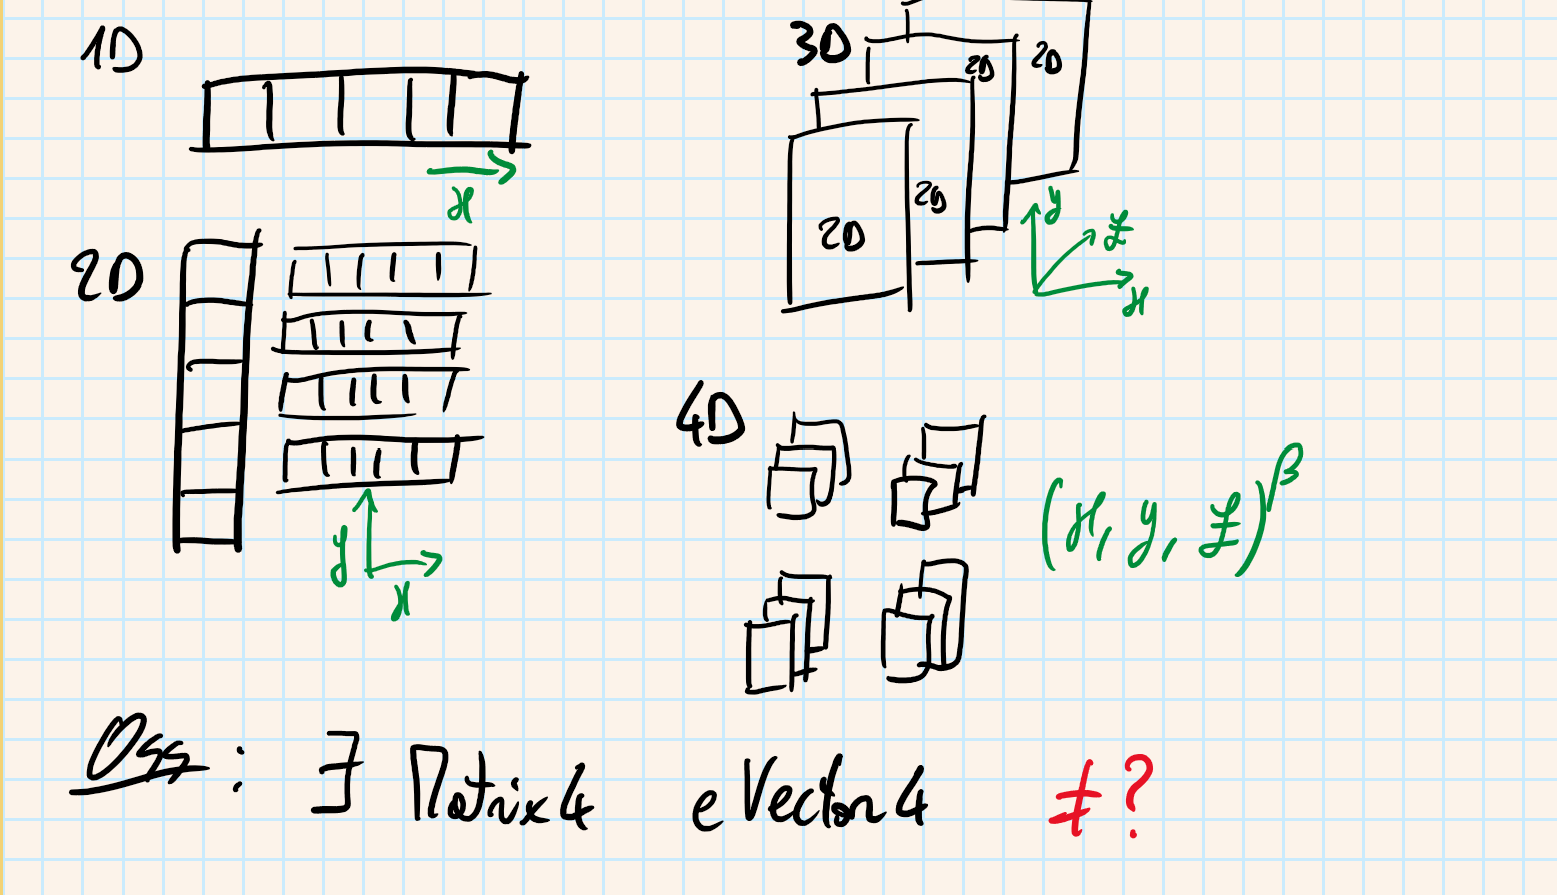 1D
x
2D
y
x
3D
2D
2D
2D
2D
y
z
x
4D
(x, y, z)^β
Oss: ∃ Matrix4 e Vector4 ≠?